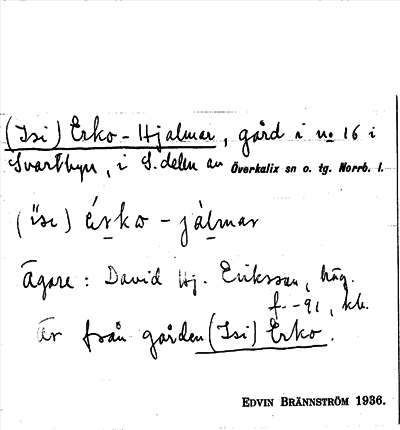 (Isi) Erko-Hjalmar, gård i no 16 i
Svartbyn, i S. delen av Överkalix sn o. tg. Norrb. l.
(ïsɩ) érko - jálmar
Ägare: David Hj. Eriksson, häg.
f. -91, kk.
Är från gården (Isi) Erko.
EDVIN BRÄNNSTRÖM 1936.